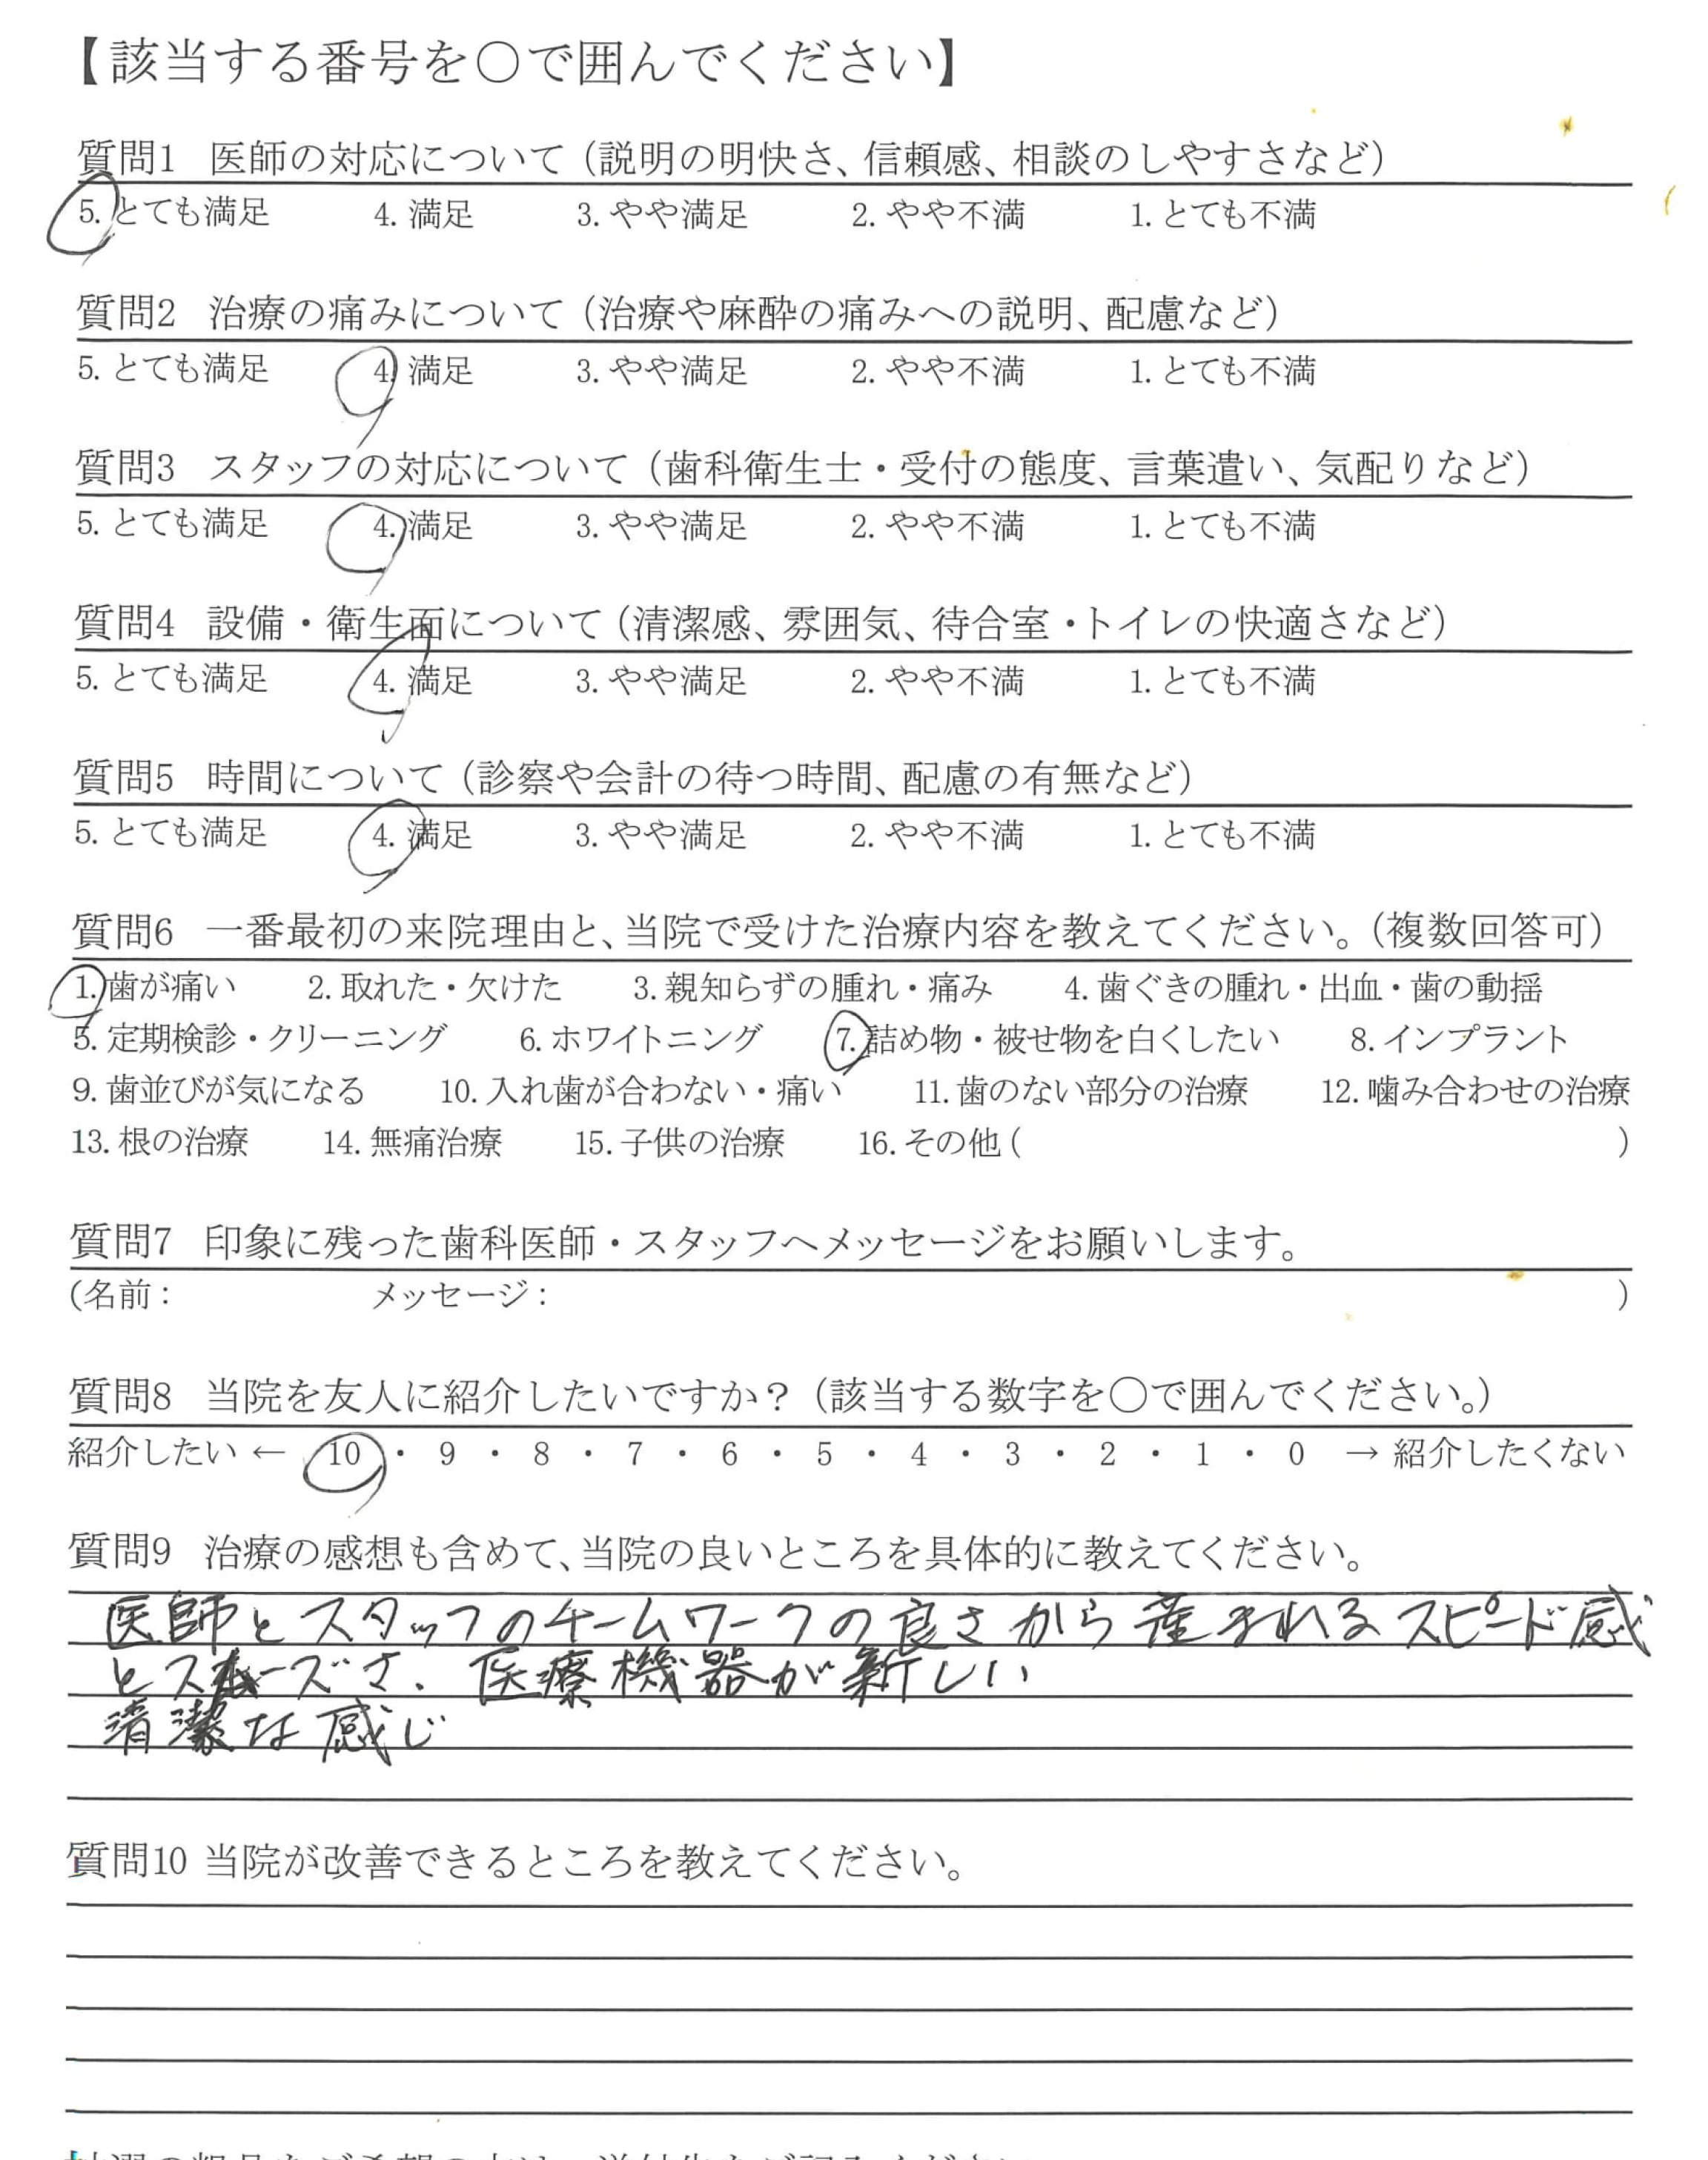 【該当する番号を〇で囲んでください】
質問1 医師の対応について（説明の明快さ、信頼感、相談のしやすさなど）
5. とても満足 4. 満足 3. やや満足 2. やや不満 1. とても不満
質問2 治療の痛みについて（治療や麻酔の痛みへの説明、配慮など）
5. とても満足 4. 満足 3. やや満足 2. やや不満 1. とても不満
質問3 スタッフの対応について（歯科衛生士・受付の態度、言葉遣い、気配りなど）
5. とても満足 4. 満足 3. やや満足 2. やや不満 1. とても不満
質問4 設備・衛生面について（清潔感、雰囲気、待合室・トイレの快適さなど）
5. とても満足 4. 満足 3. やや満足 2. やや不満 1. とても不満
質問5 時間について（診察や会計の待つ時間、配慮の有無など）
5. とても満足 4. 満足 3. やや満足 2. やや不満 1. とても不満
質問6 一番最初の来院理由と、当院で受けた治療内容を教えてください。（複数回答可）
1. 歯が痛い 2. 取れた・欠けた 3. 親知らずの腫れ・痛み 4. 歯ぐきの腫れ・出血・歯の動揺
5. 定期検診・クリーニング 6. ホワイトニング 7. 詰め物・被せ物を白くしたい 8. インプラント
9. 歯並びが気になる 10. 入れ歯が合わない・痛い 11. 歯のない部分の治療 12. 噛み合わせの治療
13. 根の治療 14. 無痛治療 15. 子供の治療 16. その他（ ）
質問7 印象に残った歯科医師・スタッフへメッセージをお願いします。
（名前： メッセージ： ）
質問8 当院を友人に紹介したいですか？（該当する数字を〇で囲んでください。）
紹介したい ← 10 ・ 9 ・ 8 ・ 7 ・ 6 ・ 5 ・ 4 ・ 3 ・ 2 ・ 1 ・ 0 → 紹介したくない
質問9 治療の感想も含めて、当院の良いところを具体的に教えてください。
医師とスタッフのチームワークの良さから産まれるスピード感
とスムーズさ、医療機器が新しい
清潔な感じ
質問10 当院が改善できるところを教えてください。